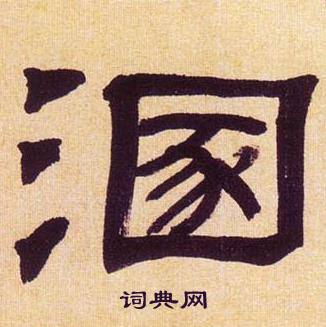 溷
词典网